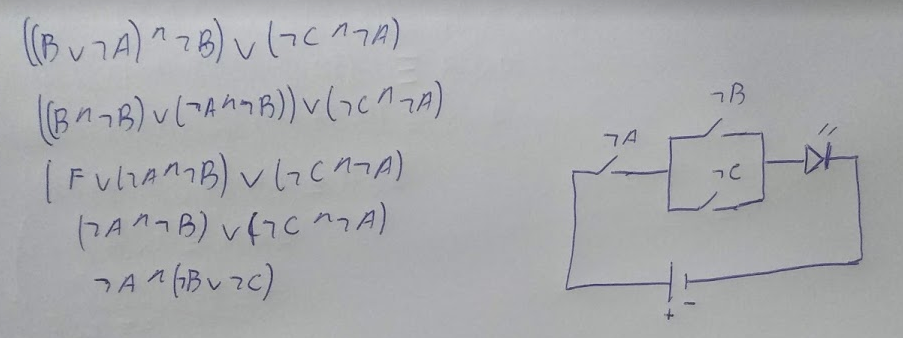 ((B ∨ ¬A) ∧ ¬B) ∨ (¬C ∧ ¬A)
((B ∧ ¬B) ∨ (¬A ∧ ¬B)) ∨ (¬C ∧ ¬A)
( F ∨ (¬A ∧ ¬B) ∨ (¬C ∧ ¬A)
(¬A ∧ ¬B) ∨ (¬C ∧ ¬A)
¬A ∧ (¬B ∨ ¬C)
¬B
¬A
¬C
+ -